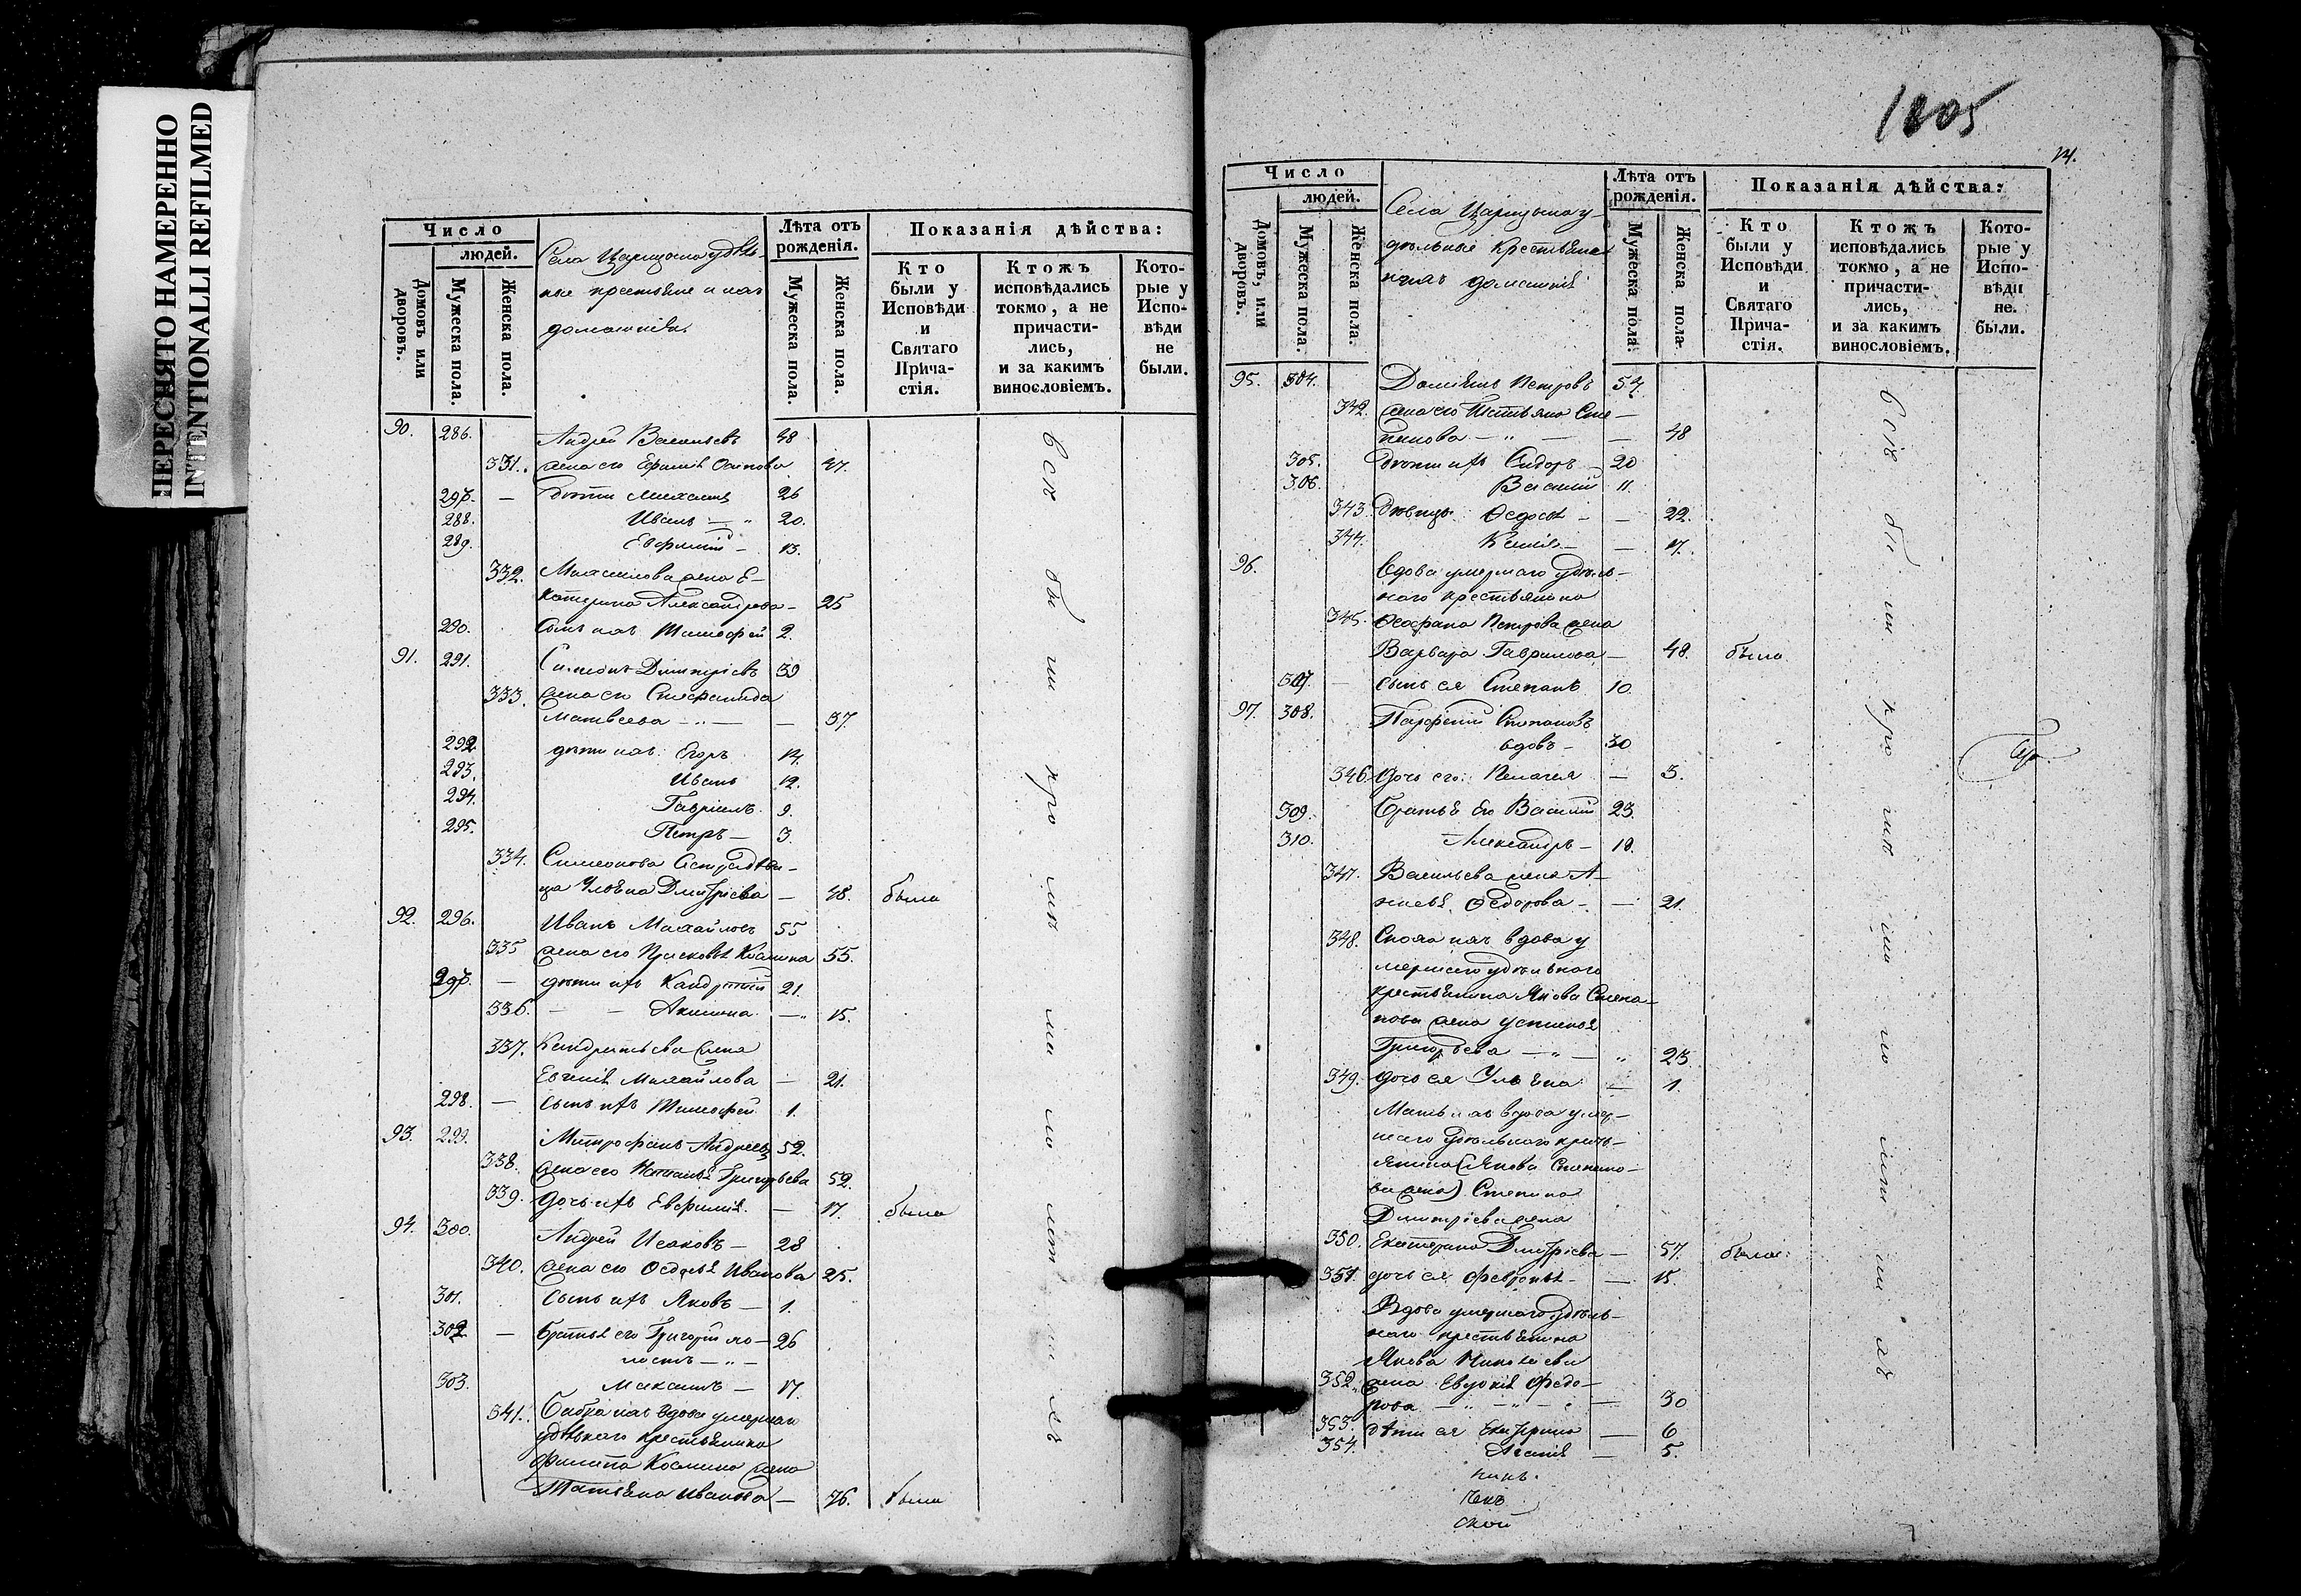 ПЕРЕСНЯТО НАМЕРЕННО
INTENTIONALLI REFILMED
Число
людей.
Домовъ или дворовъ.
Мужеска пола.
Женска пола.
Села Царицына удѣль-
ные крестьяне и ихъ
домашніе.
Лѣта отъ рожденія.
Мужеска пола.
Женска пола.
Показанія дѣйства:
Кто были у Исповѣди и Святаго Прича-стія.
Ктожъ исповѣдались токмо, а не причасти-лись, и за какимъ винословіемъ.
Кото-рые у Испо-вѣди не были.
90. 286. Андрей Васильевъ 48
331. жена его Ефимія Осипова 47.
287. — дѣти Михаилъ 26
288. Иванъ — " 20.
289. Евфимій — 13.
332. Михаилова жена Е-
катерина Александрова — 25
290. сынъ ихъ Тимофей 2.
91. 291. Симеонъ Димитріевъ 39
333. жена его Стефанида
Матвеева — " — — 37.
292. дѣти ихъ Егоръ 14.
293. Иванъ 12.
294. Гавріилъ 9.
295. Петръ — 3.
334. Симеонова сестра дѣви-
ца Ульяна Дмитріева — 48. была
92. 296. Иванъ Михайловъ 55
335 жена его Прасковья Космина 55.
297. — дѣти ихъ Кандратій 21.
336. — — Акилина — " 15.
337. Кандратьева жена
Евгенія Михайлова — 21.
298. — сынъ ихъ Тимофей 1.
93. 299. Митрофанъ Андреевъ 52.
338. жена его Наталья Григорьева 52.
339. дочь ихъ Евфимія. — 17. была
94. 300. Андрей Исаковъ — 28
340. жена его Федосья Иванова 25.
301. сынъ ихъ Яковъ — 1.
302 — братья его Григорій хо- 26
лостъ — " —
303. Максимъ — 17.
341. Бабка ихъ вдова умершаго
удѣльнаго крестьянина
Филиппа Космина жена
Татьяна Иванова — 76. была
1805
14.
Число
людей.
Домовъ, или дворовъ.
Мужеска пола.
Женска пола.
Села Царицына у-
дѣльные крестьяне
и ихъ домашніе
Лѣта отъ рожденія.
Мужеска пола.
Женска пола.
Показанія дѣйства:
Кто были у Исповѣди и Святаго Прича-стія.
Ктожъ исповѣдались токмо, а не причасти-лись, и за какимъ винословіемъ.
Кото-рые у Испо-вѣди не. были.
95. 304. Даміянъ Петровъ 57.
342. жена его Татьяна Сте-
панова — " — — 48
305. дѣти ихъ Сидоръ — 20
306. Василій 11.
343. дѣвицы Федосья — — 22.
344. Ксенія — — 17.
96. Вдова умершаго удѣль-
наго крестьянина
345. Феофана Петрова жена
Варвара Гаврилова — 48. была
307. — сынъ ея Степанъ 10.
97. 308. Парфеній Степановъ
вдовъ — 30
346. дочь его Пелагея — 5.
309. братья его Василій 23.
310. Александръ — 18.
347. Васильева жена А-
нисья Федорова — — 21.
348. Сноха ихъ вдова у
мершаго удѣльнаго
крестьянина Якова Степа-
нова жена Устинья
Григорьева — " — " 23
349. дочь ея Ульяна — 1.
Мать ихъ вдова умер-
шаго удѣльнаго кресть-
янина (Якова Степано-
ва жена) Степана
Димитріева жена
350. Екатерина Дмитріева — 57. была.
351. дочь ея Февронья — — 15.
Вдова умершаго удѣль-
наго крестьянина
Якова Николаева
352. жена Евдокія Федо-
рова — " — " — 30
353. дѣти ея Екатерина — 6
354. Агафія — 5.